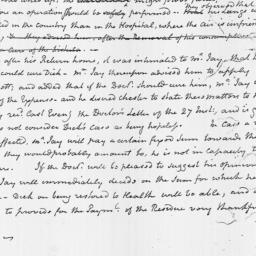 an operation might be safely performed
in the country than in the Hospital, where the Air is
they admit him after the removal of his consumption
or Cure of the fistula
after his Return home, it was intimated to Mr. Jay, that
could cure Dick — Mr. Jay thereupon advised him to apply
, and added that if the Doctr. should cure him, Mr. Jay
of the Expense — and he desired Chester to state these matters to
recd. last Evening the Doctor's Letter of the 27 Inst., and is
not consider Dick's Case as being hopeless. In Case a
effected, Mr. Jay will pay a certain fixed Sum towards
they would probably amount to, he is not in capacity, to
If the Doctr. will be pleased to suggest his opinion
Jay will immediately decide on the Sum for which he
— Dick on being restored to Health will be able, and
to provide for the Paymt. of the Residue very thankful